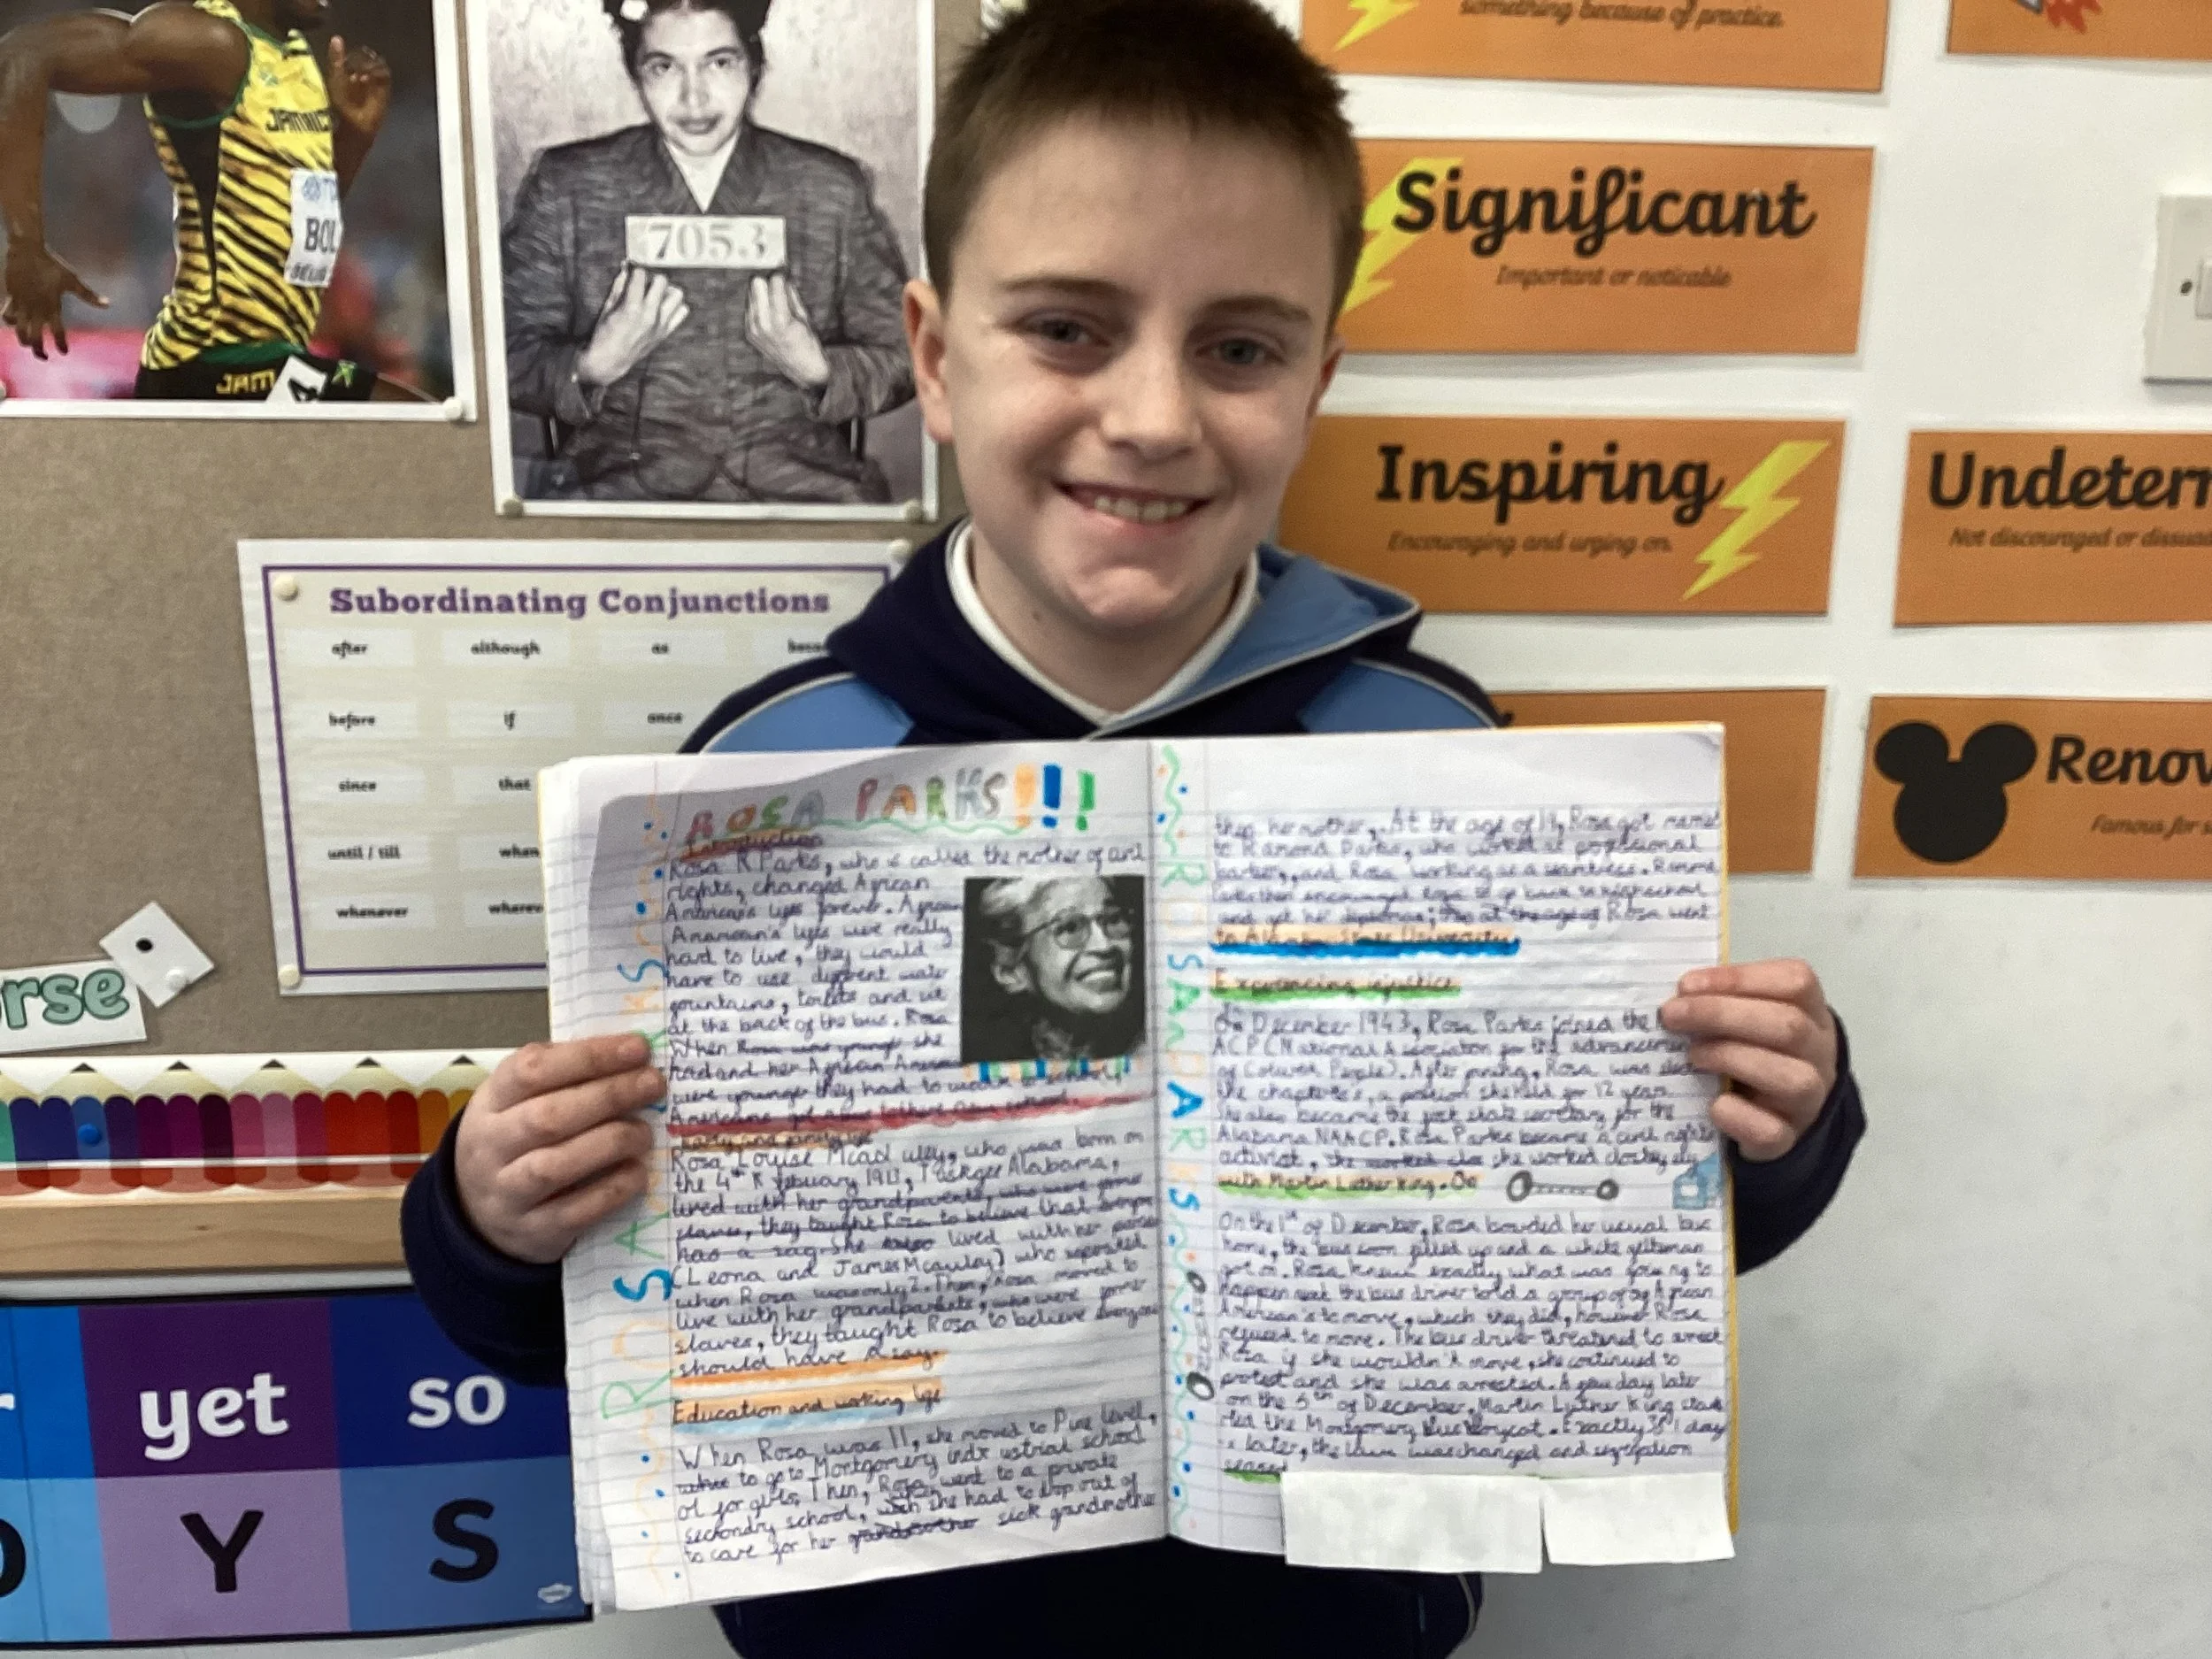 something because of practice.
JAMAIC
BOL
JAM
7053
Significant
Important or noticable
Inspiring
Encouraging and urging on.
Undeterr
Not discouraged or dissua
Renow
Famous for
Subordinating Conjunctions
after although as becau
before if once
since that
until / till when
whenever wherev
orse
yet so
Y S
ROSA PARKS!!!
Introduction
Rosa R Parks, who is called the mother of civil
rights, changed African
American's lifes forever. African
American's lifes were really
hard to live, they would
have to use different water
fountains, toilets and sit
at the back of the bus. Rosa
When Rosa was young she
had and her African
were younger they had to walk to school,
Americans
Early and family life
Rosa Louise Mcad uley, who was born on
the 4th February 1913, Tuskgee Alabama,
lived with her grandparents, who were former
slaves, they taught Rosa to believe that everyone
has a say. She also lived with her
(Leona and James Mcauley) who seperated
when Rosa was only 2. Then, Rosa moved to
live with her grandparents, who were former
slaves, they taught Rosa to believe everyone
should have a say.
Education and working life
When Rosa was 11, she moved to Pine level,
to go to Montgomery industrial school
ol for girls. Then, Rosa went to a private
secondry school, she had to drop out of
to care for her grandmother sick grandmother
ROSA PARKS
then her mother, At the age of 19, Rosa got
to Ramond Parks, who worked as
barber, and Rosa working as a
then encouraged Rosa to go back to high school
and get her diploma; at the age of Rosa went
to Alabama State University
Experiencing injustice
On December 1943, Rosa Parks joined the
ACP (National Association for the advancement
of Coloured People). After joining, Rosa was
the chapter's, a position she held for 12 years.
She also became the first state secretary for the
Alabama NAACP. Rosa Parks became a civil rights
activist, she worked closely
with Martin Luther King. On
ROSA PARKS
On the 1st of December, Rosa boarded her usual bus
home, the bus soon filled up and a white
got on. Rosa knew exactly what was going to
happen next the bus driver told a group of African
American's to move, which they did, however Rosa
refused to move. The bus driver threatened to arrest
Rosa if she wouldn't move, she continued to
protest and she was arrested. A few day late
on the 5th of December, Martin Luther King star
ted the Montgomery Bus Boycot. Exactly 381 day
s later, the law was changed and segregation
seased